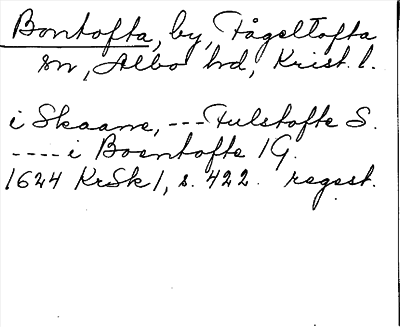 Bontofta, by, Fågeltofta
sn, Albo hd, Krist. l.
i Skaane, --- Fulstofte S.
---- i Boentofte 1 G.
1624 KrSk 1, s. 422. regest.